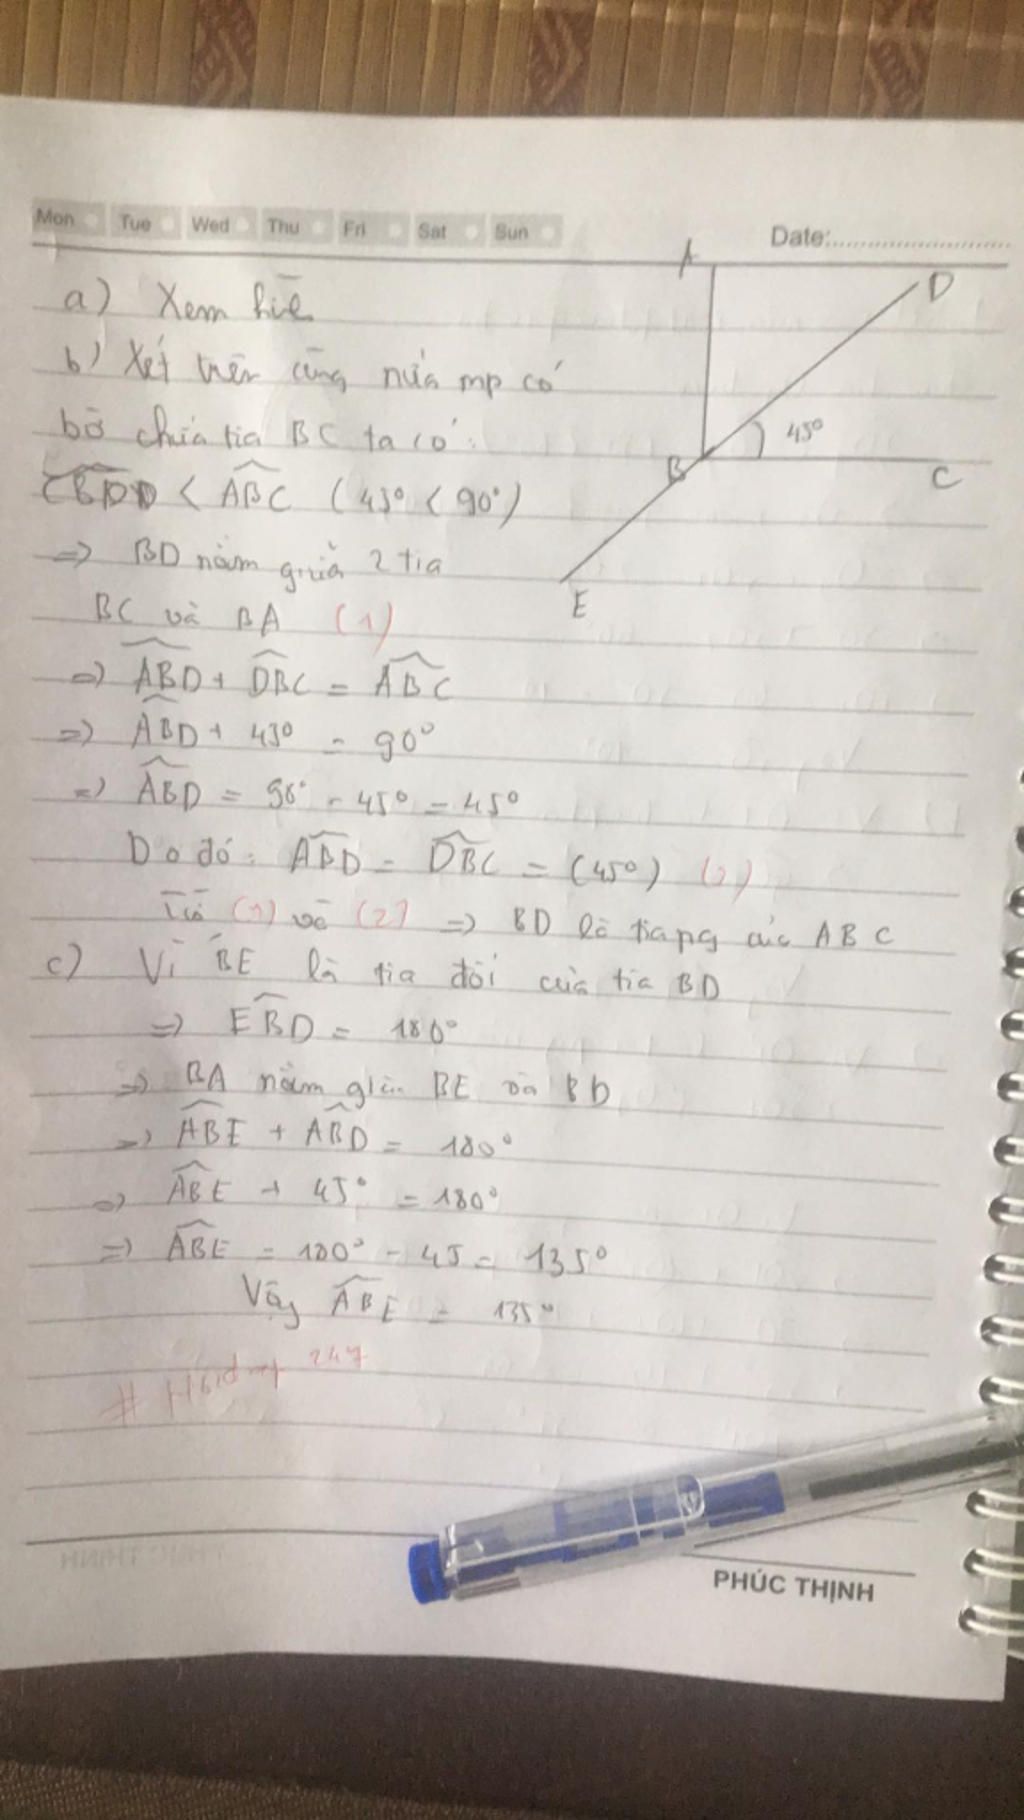 Mon Tue Wed Thu Fri Sat Sun
Date:
A
D
a) Xem hìh
b) Xét trên cùng nửa mp có
bờ chứa tia BC ta có:
45°
B
C
CBD < ABC (45° < 90°)
=> BD nằm giữa 2 tia
E
BC và BA (1)
=> ABD + DBC = ABC
=> ABD + 45° = 90°
=> ABD = 90° - 45° = 45°
Do đó: ABD = DBC = (45°) (2)
Từ (1) và (2) => BD là tia pg của ABC
c) Vì BE là tia đối của tia BD
=> EBD = 180°
=> BA nằm giữa BE và BD
=> ABE + ABD = 180°
=> ABE + 45° = 180°
=> ABE = 180° - 45 = 135°
Vậy ABE = 135°
# Hoidap 247
PHÚC THỊNH